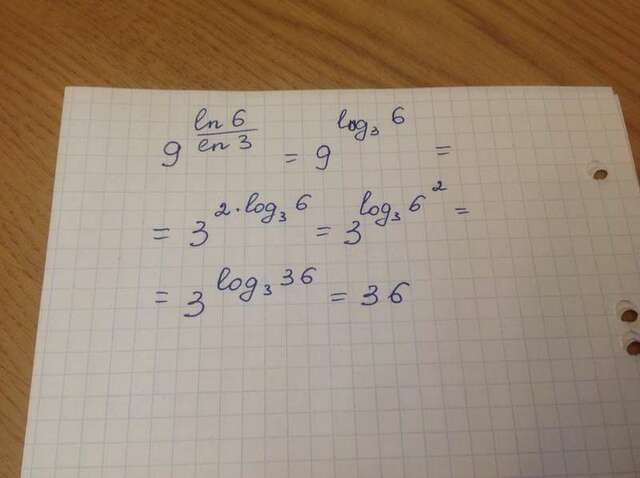 9^(ln 6 / ln 3) = 9^(log₃ 6) =
= 3^(2·log₃ 6) = 3^(log₃ 6²) =
= 3^(log₃ 36) = 36